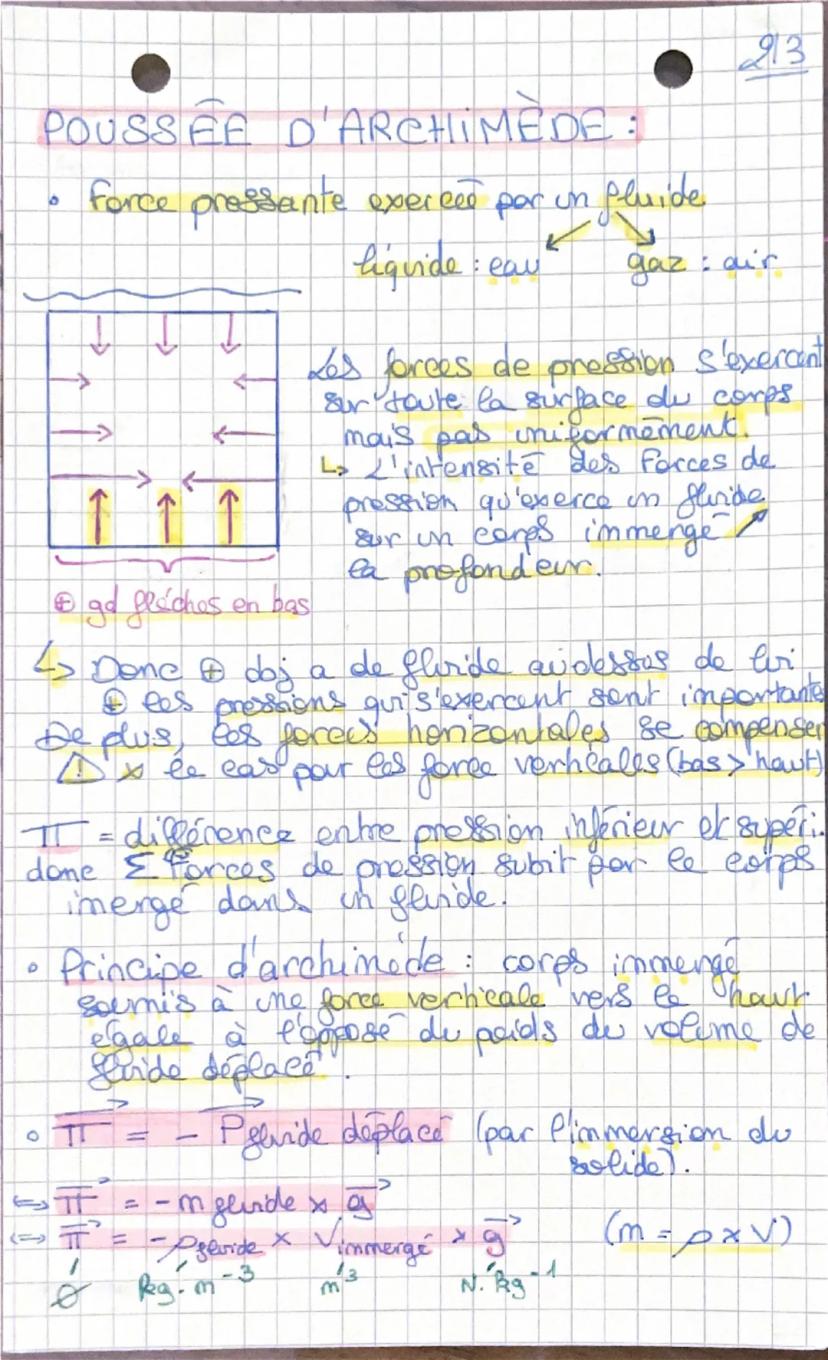 213
POUSSÉE D'ARCHIMÈDE :
• Force pressante exercée par un fluide
liquide : eau gaz : air
Les forces de pression s'exercent
sur toute la surface du corps
mais pas uniformément.
↳ L'intensité des forces de
pression qu'exerce un fluide
sur un corps immergé ↗
la profondeur.
⊕ gd flèches en bas
↳ Donc ⊕ obj a de fluide au dessus de lui
⊕ les pressions qui s'exercent sont importantes
De plus, les forces horizontales se compensent
⚠ × le cas pour les force verticales (bas > haut)
π = différence entre pression inférieur et supéri.
donc Σ forces de pression subit par le corps
imergé dans un fluide.
• Principe d'archimède : corps immergé
soumis à une force verticale vers le haut
égale à l'opposé du poids du volume de
fluide déplacé.
• π⃗ = - P⃗fluide déplacé (par l'immersion du
solide).
⇔ π⃗ = - m fluide × g⃗
⇔ π⃗ = - ρfluide × Vimmergé × g⃗ (m = ρ × V)
kg.m⁻³ m³ N.kg⁻¹